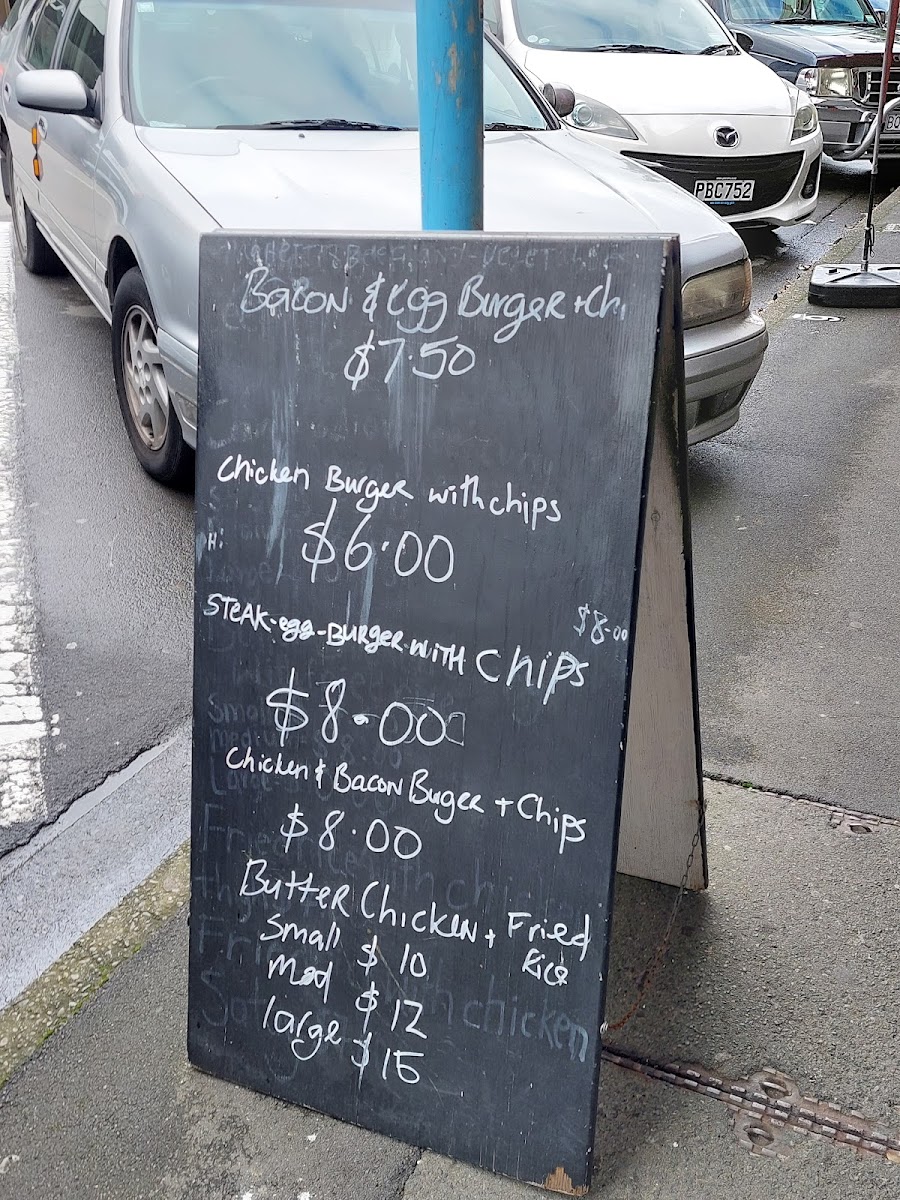 PBC752
Bacon & Egg Burger + Ch
$7.50
Chicken Burger with chips
$6.00
H:
$8.00
STEAK-egg-BURGER-WITH CHiPS
$8-00
Chicken & Bacon Buger + Chips
$8.00
Butter Chicken + Fried
Rice
Small $10
Med $12
large $15